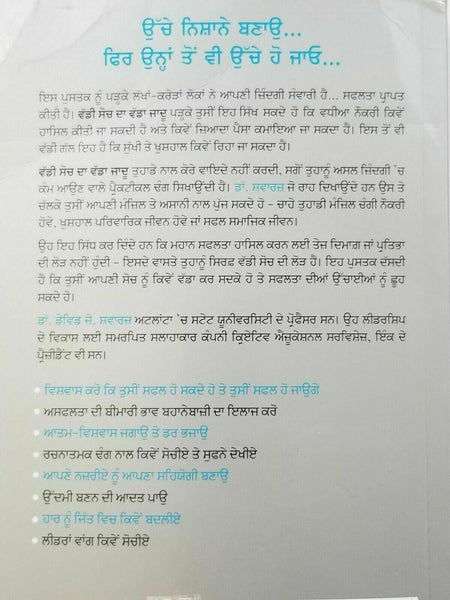 ਉੱਚੇ ਨਿਸ਼ਾਨੇ ਬਣਾਉ...
ਫਿਰ ਉਨ੍ਹਾਂ ਤੋਂ ਵੀ ਉੱਚੇ ਹੋ ਜਾਓ...
ਇਸ ਪੁਸਤਕ ਨੂੰ ਪੜ੍ਹਕੇ ਲੱਖਾਂ-ਕਰੋੜਾਂ ਲੋਕਾਂ ਨੇ ਆਪਣੀ ਜ਼ਿੰਦਗੀ ਸੰਵਾਰੀ ਹੈ... ਸਫਲਤਾ ਪ੍ਰਾਪਤ
ਕੀਤੀ ਹੈ। ਵੱਡੀ ਸੋਚ ਦਾ ਵੱਡਾ ਜਾਦੂ ਪੜ੍ਹਕੇ ਤੁਸੀਂ ਇਹ ਸਿੱਖ ਸਕਦੇ ਹੋ ਕਿ ਵਧੀਆ ਨੌਕਰੀ ਕਿਵੇਂ
ਹਾਸਿਲ ਕੀਤੀ ਜਾ ਸਕਦੀ ਹੈ ਅਤੇ ਕਿਵੇਂ ਜ਼ਿਆਦਾ ਪੈਸਾ ਕਮਾਇਆ ਜਾ ਸਕਦਾ ਹੈ। ਇਸ ਤੋਂ ਵੀ
ਵੱਡੀ ਗੱਲ ਇਹ ਹੈ ਕਿ ਸੁੱਖੀ ਤੇ ਖੁਸ਼ਹਾਲ ਕਿਵੇਂ ਰਿਹਾ ਜਾ ਸਕਦਾ ਹੈ।
ਵੱਡੀ ਸੋਚ ਦਾ ਵੱਡਾ ਜਾਦੂ ਤੁਹਾਡੇ ਨਾਲ ਕੋਰੇ ਵਾਇਦੇ ਨਹੀਂ ਕਰਦੀ, ਸਗੋਂ ਤੁਹਾਨੂੰ ਅਸਲ ਜ਼ਿੰਦਗੀ 'ਚ
ਕੰਮ ਆਉਣ ਵਾਲੇ ਪ੍ਰੈਕਟੀਕਲ ਢੰਗ ਸਿਖਾਉਂਦੀ ਹੈ। ਡਾ. ਸ਼ਵਾਰਜ਼ ਜੋ ਰਾਹ ਦਿਖਾਉਂਦੇ ਹਨ ਉਸ ਤੇ
ਚੱਲਕੇ ਤੁਸੀਂ ਆਪਣੀ ਮੰਜ਼ਿਲ ਤੇ ਅਸਾਨੀ ਨਾਲ ਪੁੱਜ ਸਕਦੇ ਹੋ - ਚਾਹੇ ਤੁਹਾਡੀ ਮੰਜ਼ਿਲ ਚੰਗੀ ਨੌਕਰੀ
ਹੋਵੇ, ਖੁਸ਼ਹਾਲ ਪਰਿਵਾਰਿਕ ਜੀਵਨ ਹੋਵੇ ਜਾਂ ਸਫਲ ਸਮਾਜਿਕ ਜੀਵਨ।
ਉਹ ਇਹ ਸਿੱਧ ਕਰ ਦਿੰਦੇ ਹਨ ਕਿ ਮਹਾਨ ਸਫਲਤਾ ਹਾਸਿਲ ਕਰਨ ਲਈ ਤੇਜ਼ ਦਿਮਾਗ਼ ਜਾਂ ਪ੍ਰਤਿਭਾ
ਦੀ ਲੋੜ ਨਹੀਂ ਹੁੰਦੀ - ਇਸਦੇ ਵਾਸਤੇ ਤੁਹਾਨੂੰ ਸਿਰਫ਼ ਵੱਡੀ ਸੋਚ ਦੀ ਲੋੜ ਹੈ। ਇਹ ਪੁਸਤਕ ਦੱਸਦੀ
ਹੈ ਕਿ ਤੁਸੀਂ ਆਪਣੀ ਸੋਚ ਨੂੰ ਕਿਵੇਂ ਵੱਡਾ ਕਰ ਸਦਕੇ ਹੋ ਤੇ ਸਫਲਤਾ ਦੀਆਂ ਉੱਚਾਈਆਂ ਨੂੰ ਛੂਹ
ਸਕਦੇ ਹੋ।
ਡਾ. ਡੇਵਿਡ ਜੋ. ਸ਼ਵਾਰਜ਼ ਅਟਲਾਂਟਾ 'ਚ ਸਟੇਟ ਯੂਨੀਵਰਸਿਟੀ ਦੇ ਪ੍ਰੋਫੈਸਰ ਸਨ। ਉਹ ਲੀਡਰਸ਼ਿਪ
ਦੇ ਵਿਕਾਸ ਲਈ ਸਮਰਪਿਤ ਸਲਾਹਾਕਾਰ ਕੰਪਨੀ ਕ੍ਰਿਏਟਿਵ ਐਜੂਕੇਸ਼ਨਲ ਸਰਵਿਸੇਜ਼, ਇੰਕ ਦੇ
ਪ੍ਰੈਜ਼ੀਡੈਂਟ ਵੀ ਸਨ।
• ਵਿਸ਼ਵਾਸ ਕਰੋ ਕਿ ਤੁਸੀਂ ਸਫਲ ਹੋ ਸਕਦੇ ਹੋ ਤੇ ਤੁਸੀਂ ਸਫਲ ਹੋ ਜਾਉਗੇ
• ਅਸਫਲਤਾ ਦੀ ਬੀਮਾਰੀ ਭਾਵ ਬਹਾਨੇਬਾਜ਼ੀ ਦਾ ਇਲਾਜ ਕਰੋ
• ਆਤਮ-ਵਿਸ਼ਵਾਸ ਜਗਾਉ ਤੇ ਡਰ ਭਜਾਉ
• ਰਚਨਾਤਮਕ ਢੰਗ ਨਾਲ ਕਿਵੇਂ ਸੋਚੀਏ ਤੇ ਸੁਫਨੇ ਦੇਖੀਏ
• ਆਪਣੇ ਨਜ਼ਰੀਏ ਨੂੰ ਆਪਣਾ ਸਹਿਯੋਗੀ ਬਣਾਉ
• ਉੱਦਮੀ ਬਣਨ ਦੀ ਆਦਤ ਪਾਉ
• ਹਾਰ ਨੂੰ ਜਿੱਤ ਵਿਚ ਕਿਵੇਂ ਬਦਲੀਏ
• ਲੀਡਰਾਂ ਵਾਂਗ ਕਿਵੇਂ ਸੋਚੀਏ